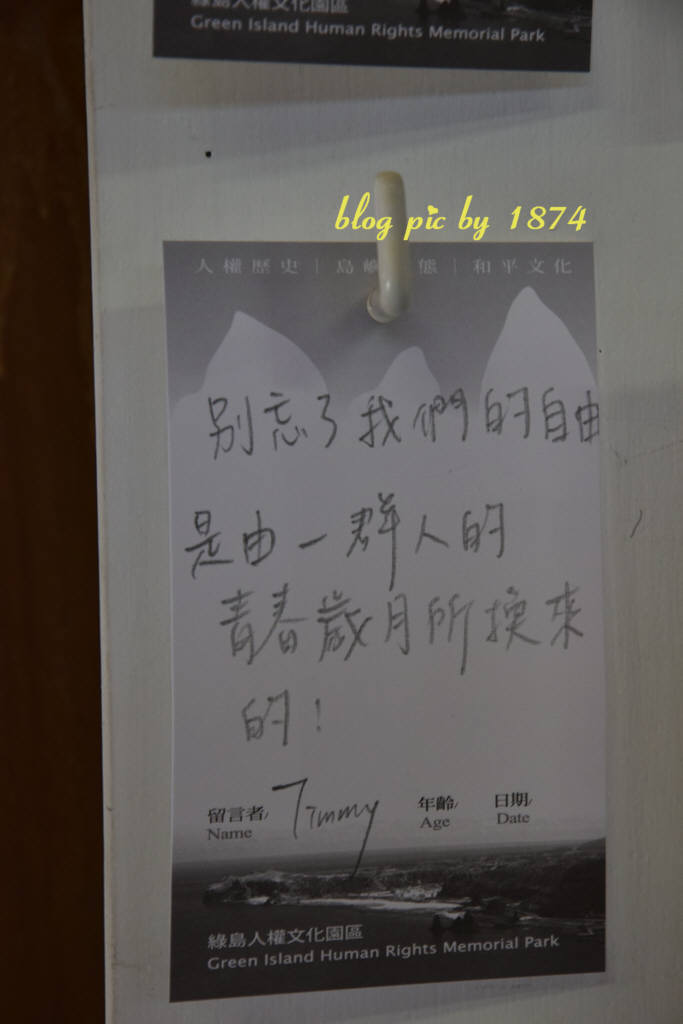 綠島人權文化園區
Green Island Human Rights Memorial Park
blog pic by 1874
人權歷史｜島嶼 態｜和平文化
別忘了我們的自由
是由一群人的
青春歲月所換來
的！
留言者/ Timmy 年齡/ 日期/
Name Age Date
綠島人權文化園區
Green Island Human Rights Memorial Park